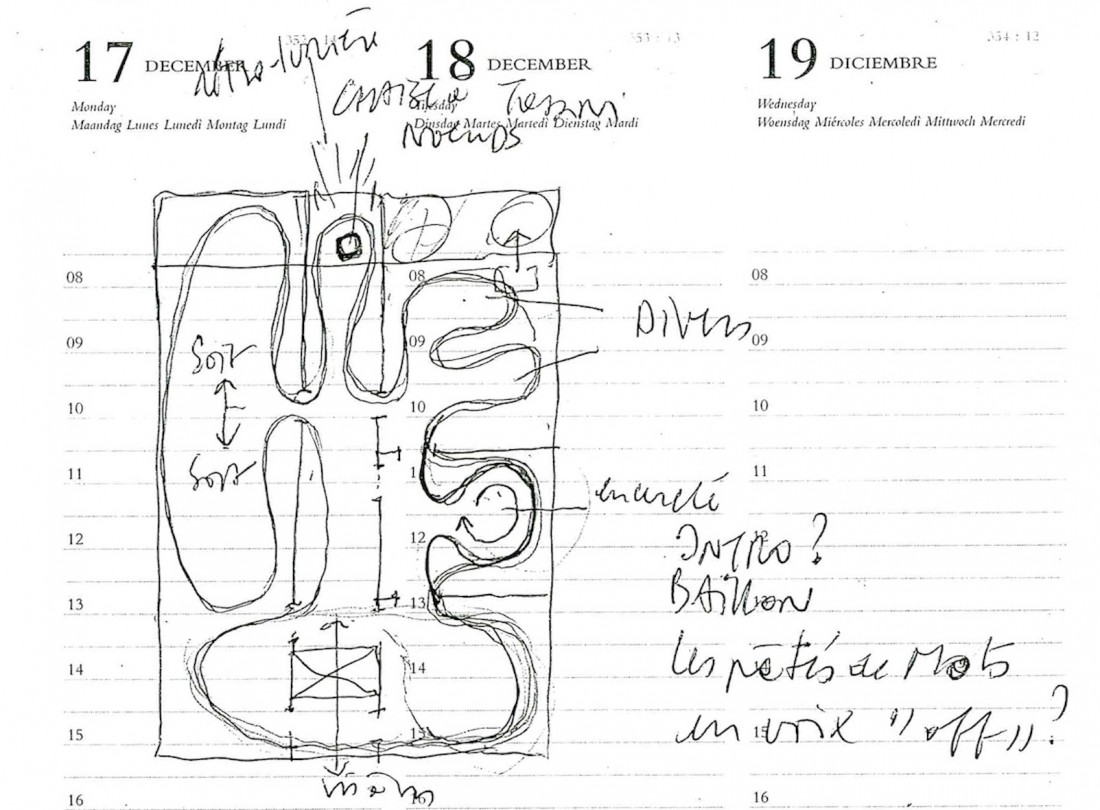 17 DECEMBER
353 : 14
Monday
Maandag Lunes Lunedì Montag Lundi
18 DECEMBER
353 : 13
Tuesday
Dinsdag Martes Martedì Dienstag Mardi
19 DICIEMBRE
354 : 12
Wednesday
Woensdag Miércoles Mercoledì Mittwoch Mercredi
rétro-lumière
NOEUDS
08 08 08
09 09 09
10 10 10
11 11
12 12 12
13 13
14 14
15 15 15
16 16 16
Divers
INTRO?
BAILLON
les pâtés de Mots
en voix "off"?